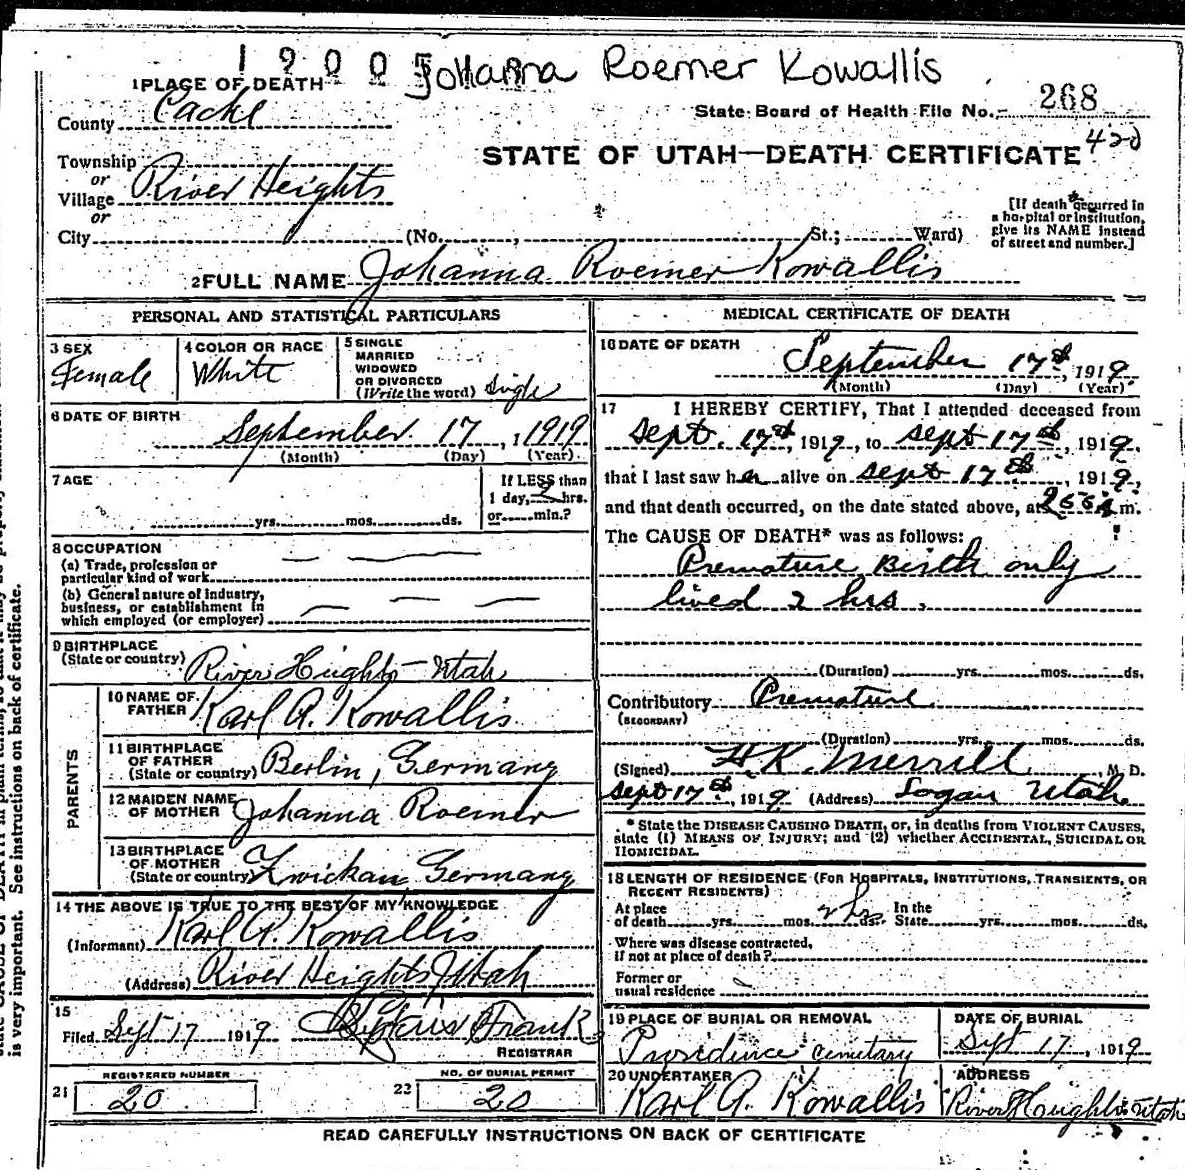 1 9 0 0 5 Johanna Roemer Kowallis
1 PLACE OF DEATH
State Board of Health File No. 268
County Cache
420
STATE OF UTAH—DEATH CERTIFICATE
Township
or
Village River Heights
or
City (No. , St.; Ward)
[If death occurred in
a hospital or institution,
give its NAME instead
of street and number.]
2 FULL NAME Johanna Roemer Kowallis
PERSONAL AND STATISTICAL PARTICULARS
3 SEX
Female
4 COLOR OR RACE
White
5 SINGLE
MARRIED
WIDOWED
OR DIVORCED
(Write the word) Single
6 DATE OF BIRTH
September 17, 1 1919
(Month) (Day) (Year)
7 AGE
yrs. mos. ds.
If LESS than
1 day, 2 hrs.
or min.?
8 OCCUPATION
(a) Trade, profession or
particular kind of work
(b) General nature of industry,
business, or establishment in
which employed (or employer)
9 BIRTHPLACE
(State or country) River Heights - Utah
PARENTS
10 NAME OF
FATHER Karl A. Kowallis
11 BIRTHPLACE
OF FATHER
(State or country) Berlin, Germany
12 MAIDEN NAME
OF MOTHER Johanna Roemer
13 BIRTHPLACE
OF MOTHER
(State or country) Zwickau, Germany
14 THE ABOVE IS TRUE TO THE BEST OF MY KNOWLEDGE
(Informant) Karl A. Kowallis
(Address) River Heights, Utah
15
Filed Sept 17 1919
REGISTRAR
REGISTERED NUMBER
21 20
NO. OF BURIAL PERMIT
22 20
MEDICAL CERTIFICATE OF DEATH
16 DATE OF DEATH
September 17th, 1919
(Month) (Day) (Year)
17 I HEREBY CERTIFY, That I attended deceased from
Sept. 17th, 1919, to Sept 17th, 1919,
that I last saw her alive on Sept 17th, 1919,
and that death occurred, on the date stated above, at m.
The CAUSE OF DEATH* was as follows:
Premature Birth only
lived 2 hrs.
(Duration) yrs. mos. ds.
Contributory Premature
(SECONDARY)
(Duration) yrs. mos. ds.
(Signed) H.K. Merrill, M. D.
Sept 17th, 1919 (Address) Logan Utah
* State the DISEASE CAUSING DEATH, or, in deaths from VIOLENT CAUSES,
state (1) MEANS OF INJURY; and (2) whether ACCIDENTAL, SUICIDAL OR
HOMICIDAL.
18 LENGTH OF RESIDENCE (FOR HOSPITALS, INSTITUTIONS, TRANSIENTS, OR
RECENT RESIDENTS)
At place In the
of death yrs. mos. 2 hrs. ds. State yrs. mos. ds.
Where was disease contracted,
if not at place of death?
Former or
usual residence
19 PLACE OF BURIAL OR REMOVAL
Providence Cemetary
DATE OF BURIAL
Sept 17, 1919
20 UNDERTAKER
Karl A. Kowallis
ADDRESS
River Heights Utah
READ CAREFULLY INSTRUCTIONS ON BACK OF CERTIFICATE
is very important. See instructions on back of certificate.